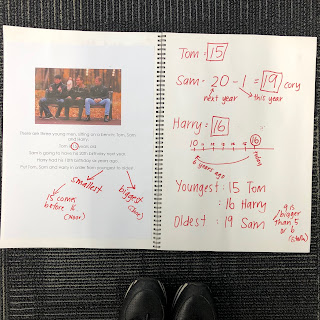 There are three young men sitting on a bench, Tom, Sam
and Harry.
Tom is 15 years old.
Sam is going to have his 20th birthday next year.
Harry had his 10th birthday six years ago.
Put Tom, Sam and Harry in order from youngest to oldest.
smallest
biggest
15 comes
before 16
Tom = 15
Sam = 20 - 1 = 19 cory
next year
this year
Harry = 16
10
16
6 years ago
today
Youngest: 15 Tom
: 16 Harry
Oldest: 19 Sam
9 is
bigger
than 5
or 6